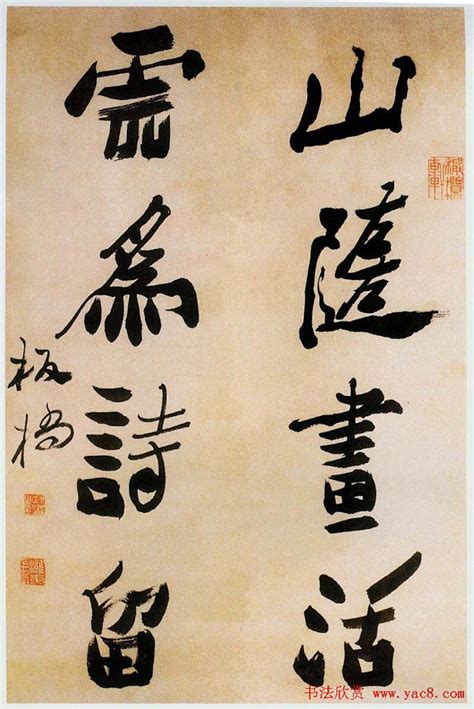 山隨畫活
雲為詩留
板橋
书法欣赏 www.yac8.com